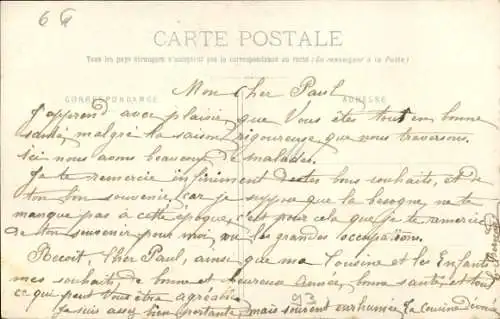 6 F
CARTE POSTALE
Tous les pays étrangers n'acceptent pas la correspondance au recto (Se renseigner à la Poste)
Mon cher Paul
CORRESPONDANCE
ADRESSE
J'apprend avec plaisir que Vous êtes tout en bonne
santé, malgré la saison rigoureuse que nous traversons.
Ici nous avons beaucoup de malades.
Je te remercie infiniment de tes bons souhaits, et de
ton bon souvenir, car je suppose que la besogne, ne te
manque pas à cette époque, c'est pour cela que je te remercie
de ton souvenir pour moi, vu les grandes occupations.
Reçoit, Cher Paul, ainsi que ma Cousine et les Enfants
mes souhaits de bonne et heureuse année, bonne santé, et tout
ce qui peut Vous être agréable
Je suis assez bien portante, mais souvent enrhumée, La Cousine
93